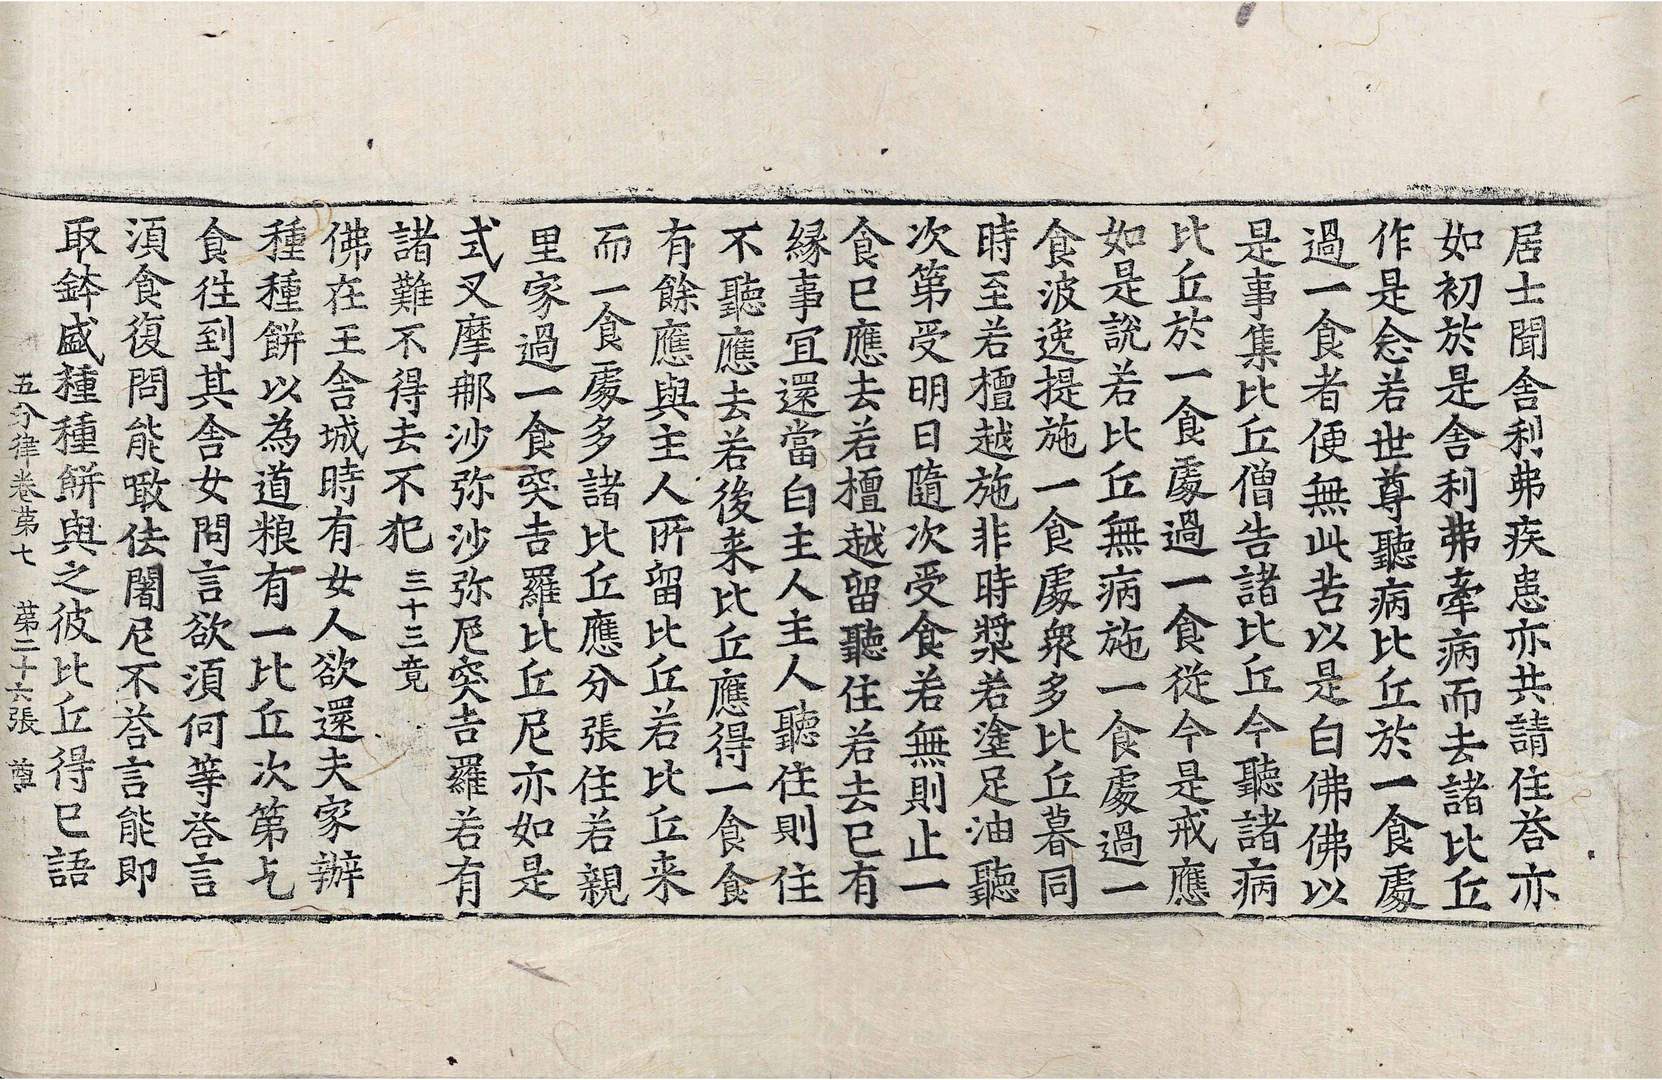 居士聞舍利弗疾患亦共請住荅亦
如初於是舍利弗牽病而去諸比丘
作是念若世尊聽病比丘於一食處
過一食者便無此苦以是白佛佛以
是事集比丘僧告諸比丘今聽諸病
比丘於一食處過一食從今是戒應
如是說若比丘無病施一食處過一
食波逸提施一食處衆多比丘暮同
時至若檀越施非時漿若塗足油聽
次第受明日隨次受食若無則止一
食已應去若檀越留聽住若去已有
緣事宜還當白主人主人聽住則住
不聽應去若後来比丘應得一食食
有餘應與主人所留比丘若比丘来
而一食處多諸比丘應分張住若親
里家過一食突吉羅比丘尼亦如是
式叉摩那沙弥沙弥尼突吉羅若有
諸難不得去不犯三十三竟
佛在王舍城時有女人欲還夫家辦
種種餅以為道粮有一比丘次第乞
食往到其舍女問言欲須何等荅言
須食復問能噉佉闍尼不荅言能即
取鉢盛種種餅與之彼比丘得已語
五分律卷第七 第二十六張 尊